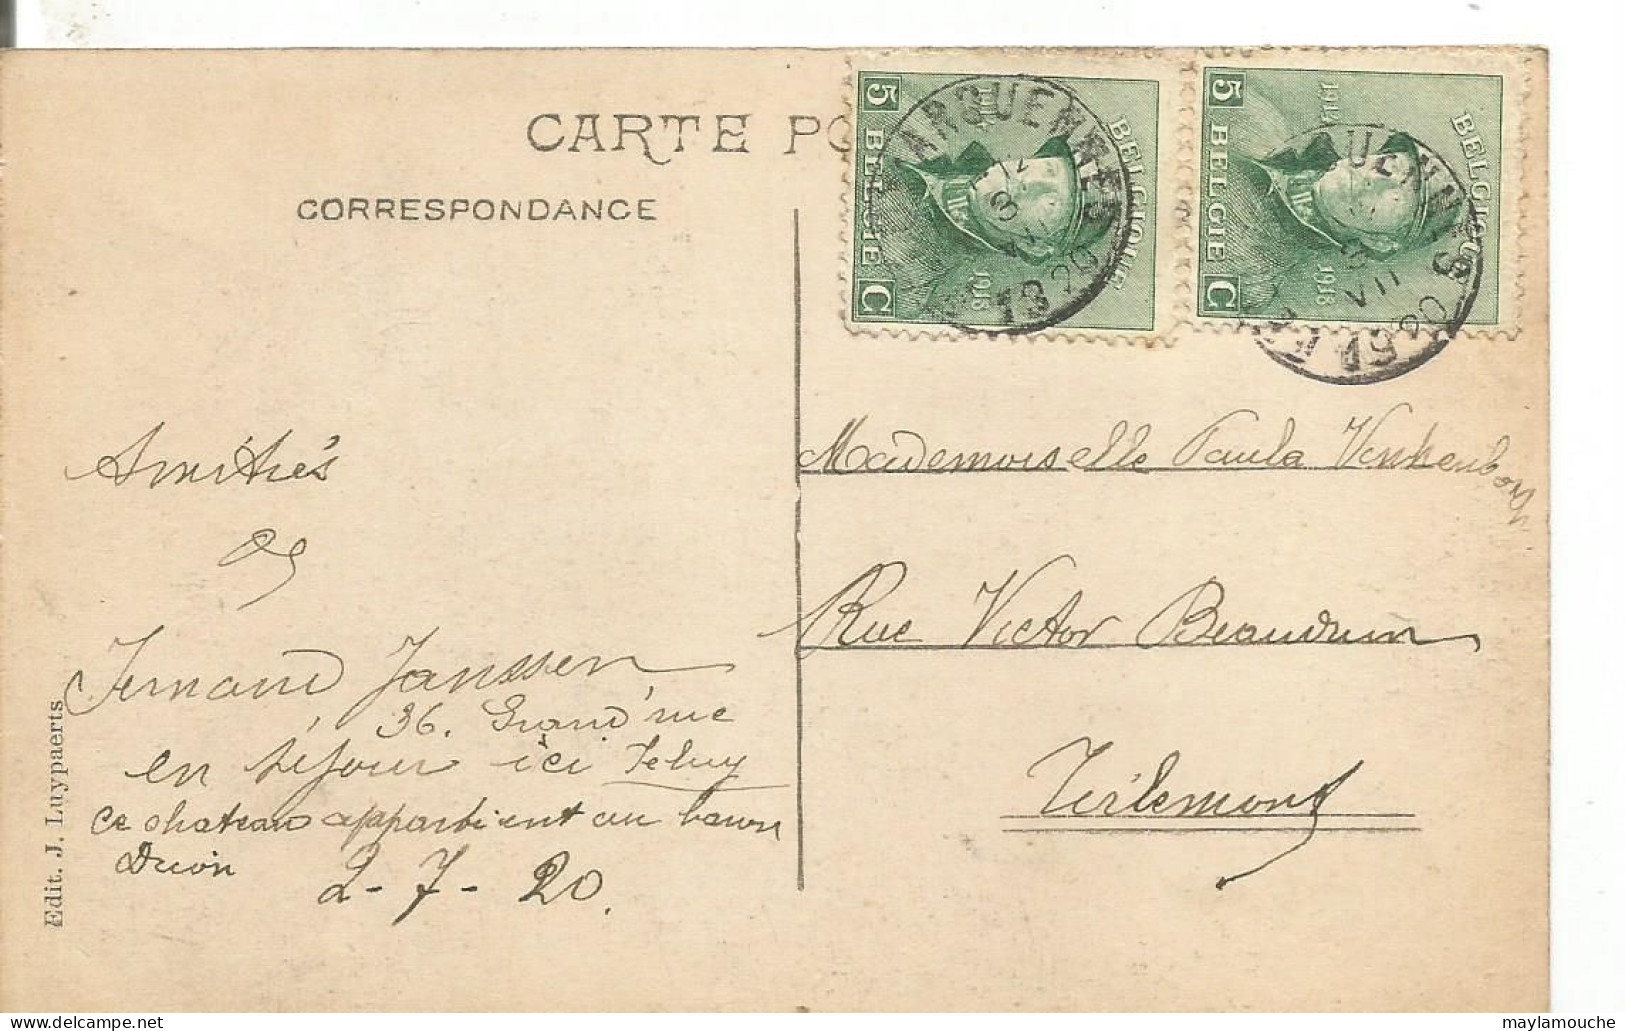 CARTE PO
CORRESPONDANCE
5 BELGIE C
BELGIQUE
1914
1918
MARQUENNES
VII
20
13
5 BELGIE C
BELGIQUE
1914
1918
QUENNES
VII
20
Amitiés
de
Fernand Janssen
36. Grand'rue
en séjour ici Feluy
Ce chateau appartient au baron
Drion
2-7-20.
Mademoiselle Paula
Rue Victor Beauduin
Tirlemont
Edit. J. Luypaerts
maylamouche